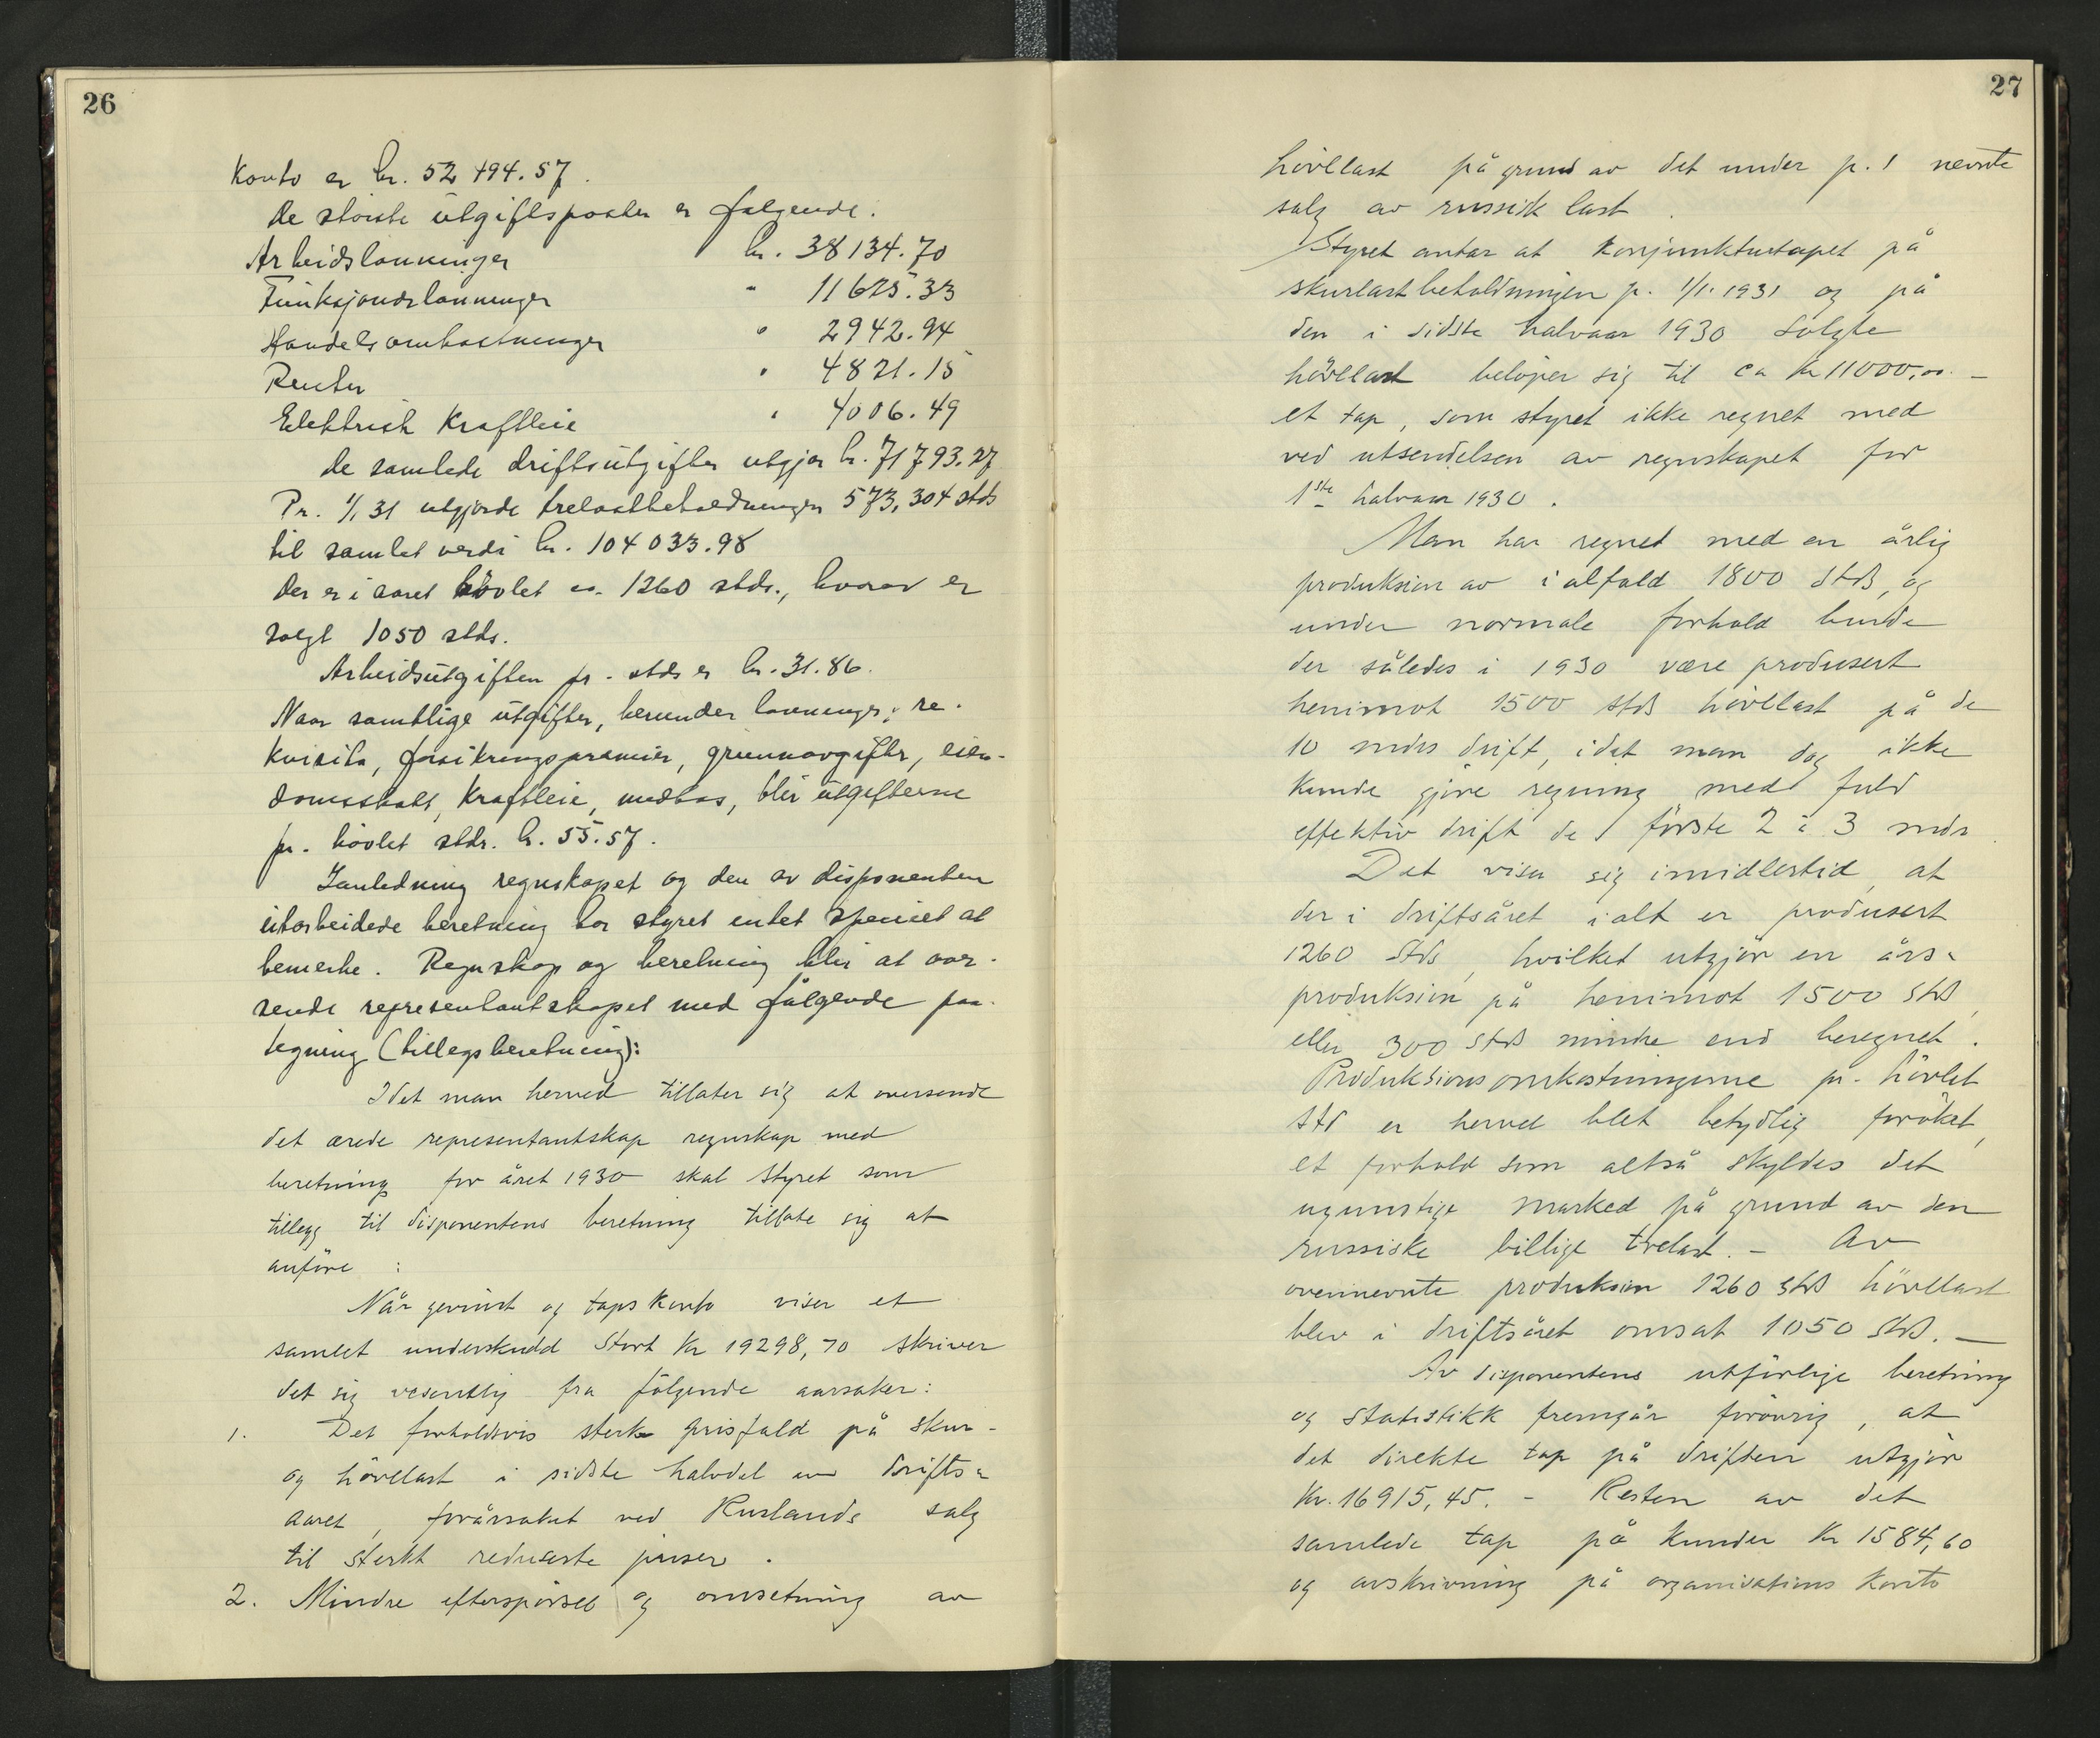 26
Konto er kr. 52 494.57.
De störste utgiftsposter er følgende.
Arbeidslönninger kr. 38134.70
Funksjonærlönninger " 11625.33
Handelsomkostninger " 2942.94
Renter " 4821.15
Elektrisk Kraftleie " 4006.49
De samlede driftsutgifter utgjør kr. 71793.27
Pr. 1/1 31 utgjorde trelastbeholdningen 573,304 stds
til samlet verdi kr. 104 033.98
Der er i aaret hövlet ca. 1260 stds., hvorav er
solgt 1050 stds.
Arbeidsutgiften pr. stds er kr. 31.86.
Naar samtlige utgifter, herunder lønninger, re-
kvisita, forsikringspremier, grunnavgifter, eien-
domsskatt, kraftleie, medtas, blir utgifterne
pr. hövlet stdr. kr. 55.57.
I anledning regnskapet og den av disponenten
utarbeidede beretning har styret intet specielt at
bemerke. Regnskap og beretning blir at over-
sende representantskapet med følgende paa-
tegning (tillegsberetning):
Idet man herved tillater sig at oversende
det ærede representantskap regnskap med
beretning for året 1930 skal styret som
tillegg til disponentens beretning tillate sig at
anføre :
Når gevinst og taps konto viser et
samlet underskudd stort kr 19298,70 skriver
det sig vesentlig fra følgende aarsaker:
1. Det forholdsvis sterke prisfald på skur-
og hövellast i sidste halvdel av drifts-
aaret, forårsaket ved Ruslands salg
til sterkt reduserte priser.
2. Mindre efterspörsel og omsetning av
27
hövllast på grund av det under p. 1 nevnte
salg av russisk last.
Styret antar at konjunkturtapet på
skurlastbeholdningen p. 1/1. 1931 og på
den i sidste halvaar 1930 solgte
hövllast belöper sig til ca kr 11000,00. -
et tap, som styret ikke regnet med
ved utsendelsen av regnskapet for
1ste halvaar 1930.
Man har regnet med en årlig
produksion av ialfald 1800 stds, og
under normale forhold burde
der således i 1930 være produsert
henimot 1500 stds hövllast på de
10 mdrs drift, idet man dog ikke
kunde gjöre regning med fuld
effektiv drift de förste 2 à 3 mdr
Det viser sig imidlertid, at
der i driftsåret ialt er produsert
1260 stds, hvilket utgjör en års-
produksion på henimot 1500 stds,
eller 300 stds mindre end beregnet.
Produksionsomkostningerne pr. hövlet
std er herved blet betydlig foröket,
et forhold som altså skyldes det
ugunstige marked på grund av den
russiske billige trelast. - Av
ovennevnte produksion 1260 stds hövllast
blev i driftsåret omsat 1050 stds. -
Av disponentens utförlige beretning
og statistikk fremgår forövrig, at
det direkte tap på driften utgjör
Kr. 16915,45. - Resten av det
samlede tap på kunder Kr 1584,60
og avskrivning på organisations konto